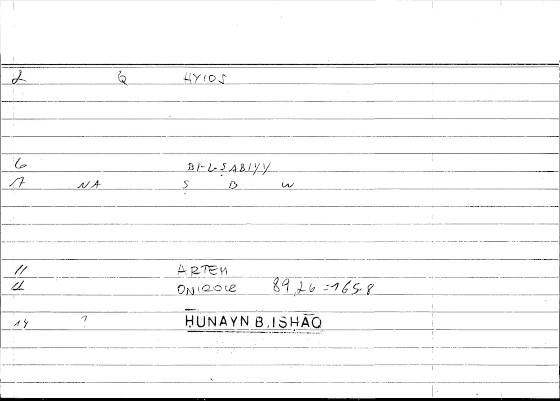 2 Q HYIOS
6 BI-L-ṢABIYY
7 NA Ṣ B W
11 ARTEM
ONIROCR 89,26 =165.8
14 ? ḤUNAYN B. ISḤĀQ